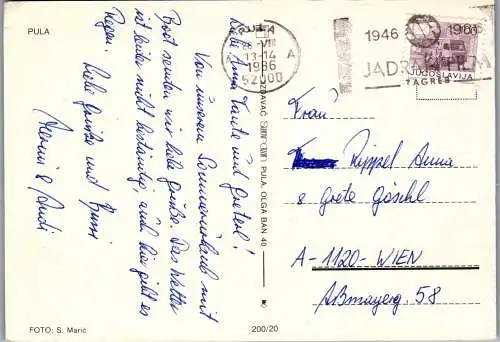 PULA
Liebe Anna Tante und Greterl!
Von unserem Sommerurlaub mit
Boot senden wir liebe Grüße. Das Wetter
ist leider nicht beständig, auch hier gibt es
Regen. Liebe Grüße und Bussi
Hermi & Rudi
FOTO: S. Maric
IZDAVAČ PULA, OLGA BAN 40
200/20
PULA
VIII
13-14
A
1986
52000
1946 1986
JADRAN FILM
ZAGREB
JUGOSLAVIJA
Frau
Rippel Anna
& Grete Göschl
A-1120-WIEN
Aßmayerg. 58